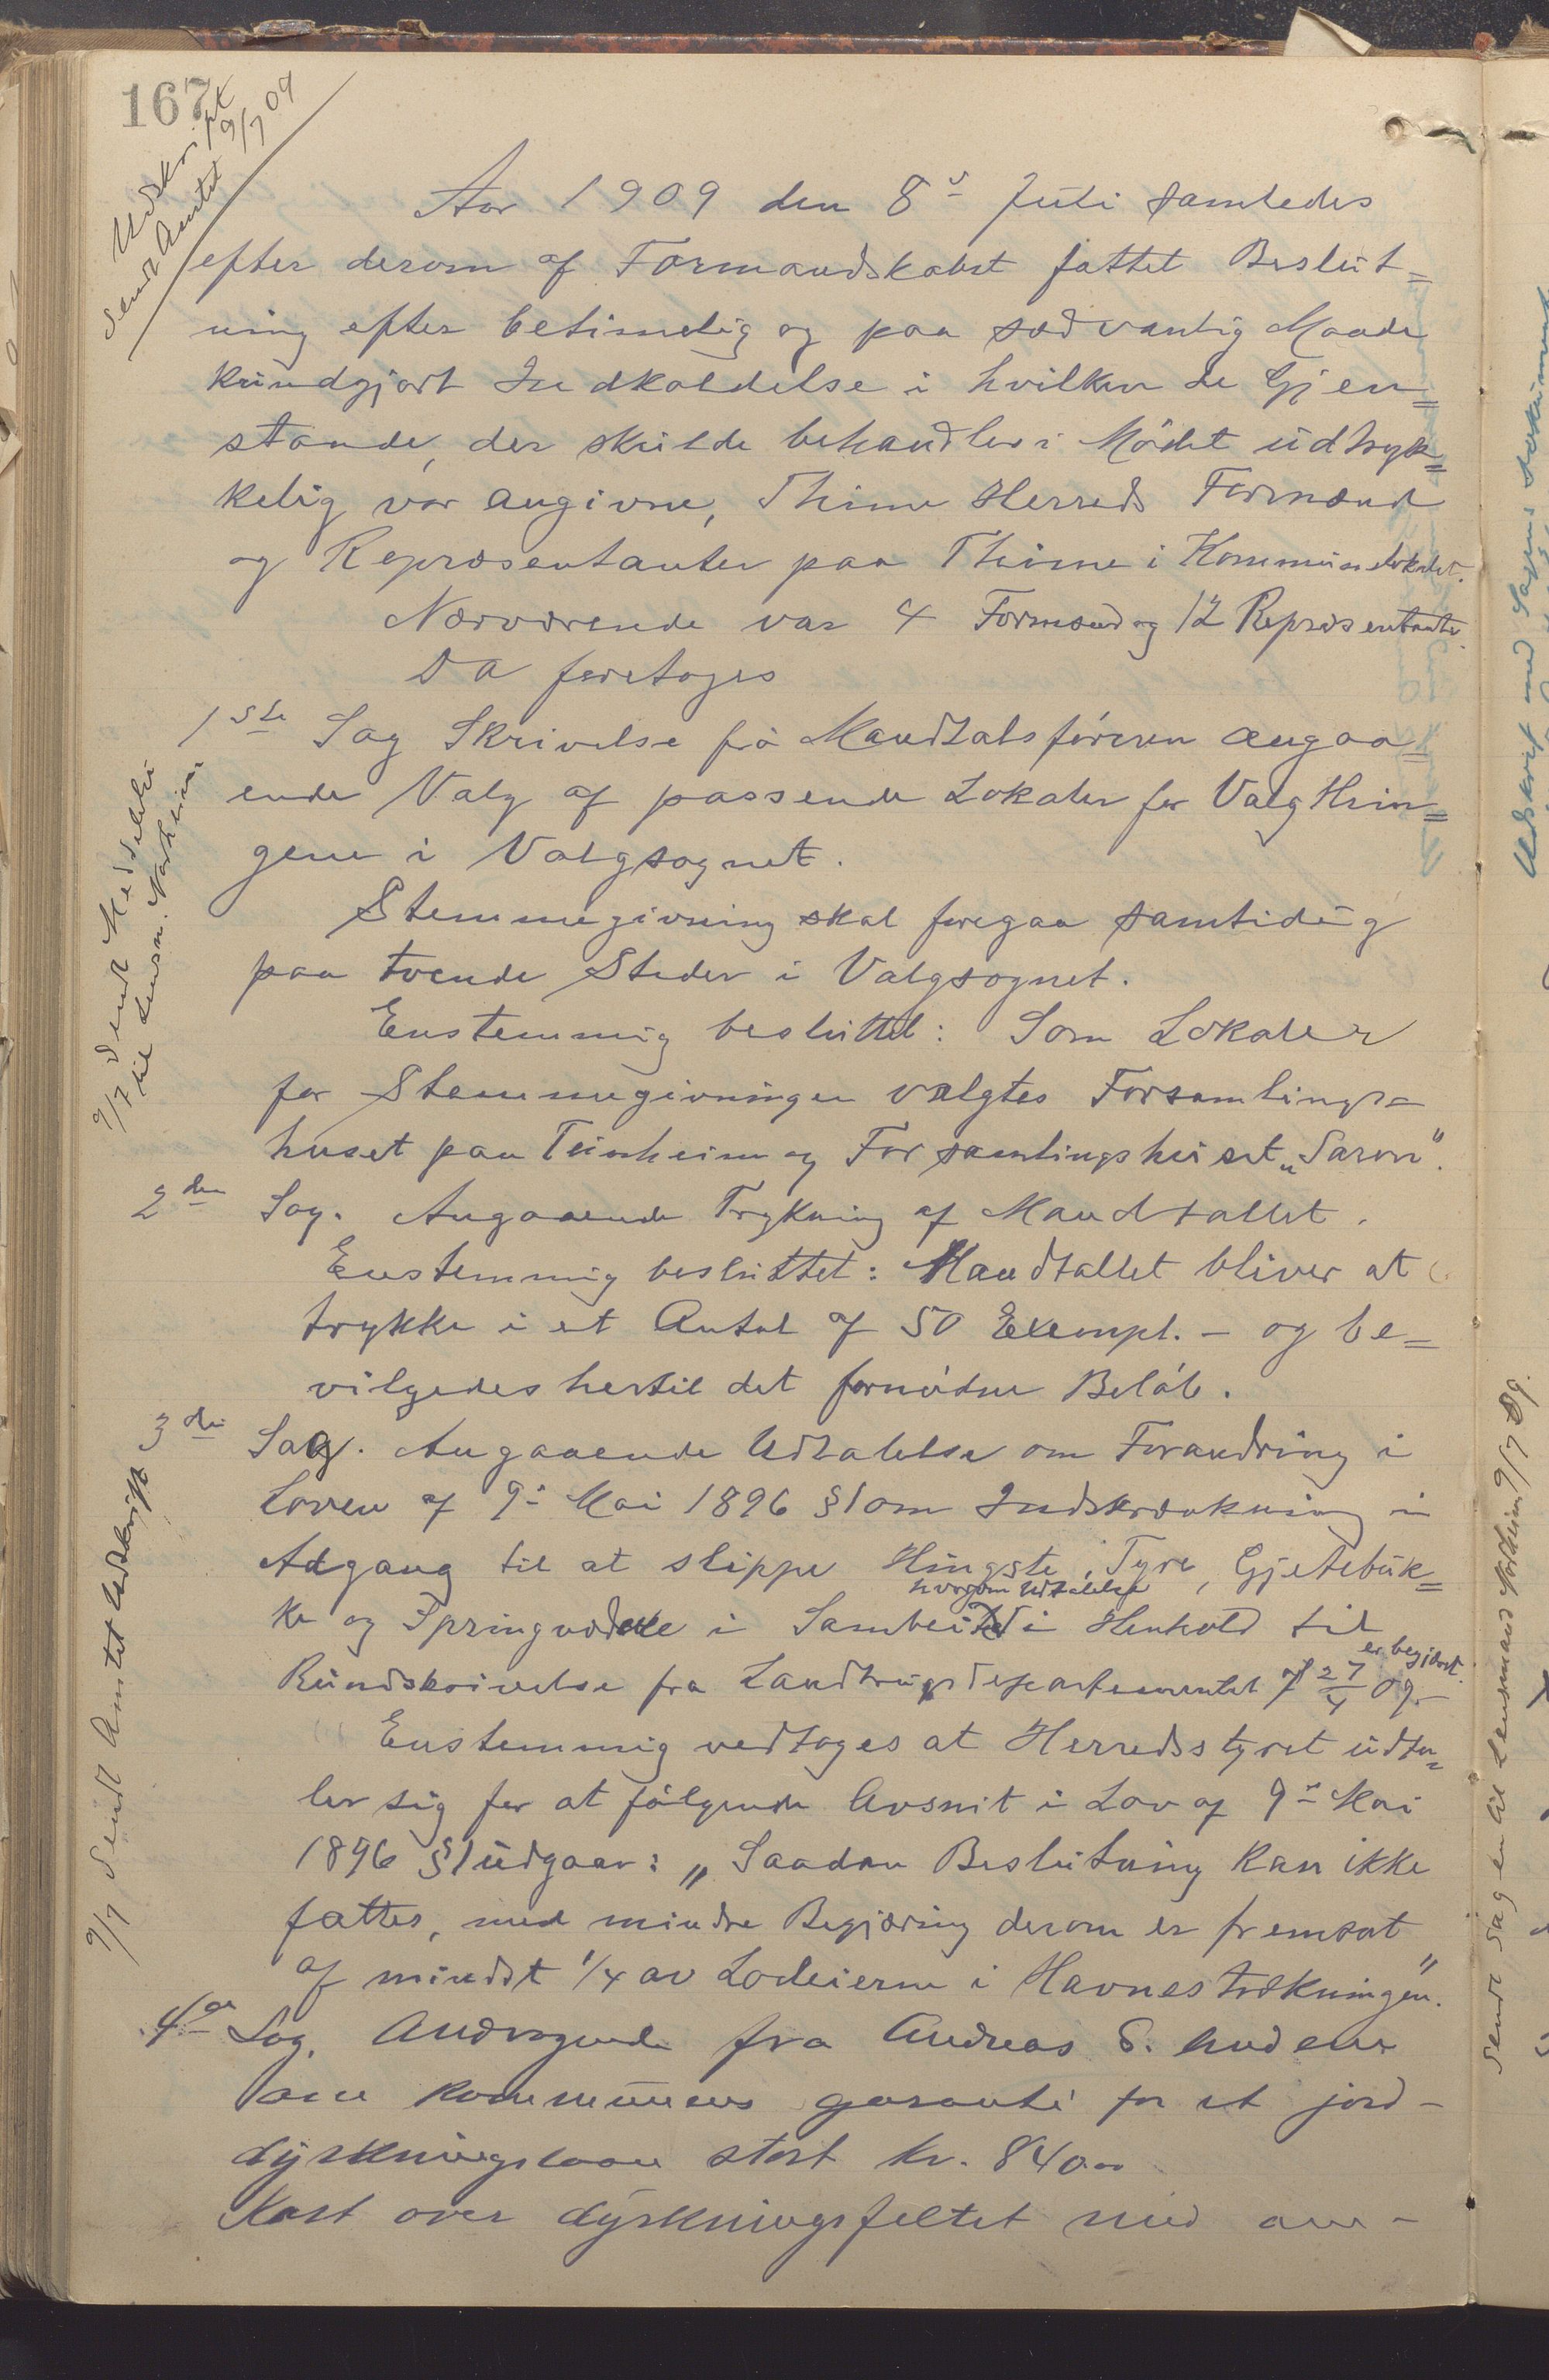 167
Udskript
sendt Amtet 9/7 09
Aar 1909 den 8de Juli samledes
efter derom af Formandskabet fattet Beslut=
ning efter betimelig og paa sædvanlig Maade
kundgjort Indkaldelse i hvilken de Gjen=
stande, der skulde behandles i Mödet udtryk=
kelig var angivne, Thime Herreds Formænd
og Repræsentanter paa Thime i Kommunelokalet.
Nærværende var 4 Formænd og 12 Repræsentanter.
Da foretoges
1ste Sag Skrivelse frå Mandtalsföreren angaa=
ende Valg af passende Lokaler for Valgthin=
gene i Valgsognet.
Stemmegivning skal foregaa samtidig
paa tvende Steder i Valgsognet.
9/7 Sendt Meddelelse
til Lensm. Norheim
Enstemmig besluttet: Som Lokaler
for Stemmegivningen valgtes Forsamlings=
huset paa Tunheim og Forsamlingshuset „Saron".
2den Sag. Angaaende Trykning af Mandtallet.
Enstemmig besluttet: Mandtallet bliver at
trykke i et Antal af 50 Exempl. - og be=
vilgedes hertil det fornödne Belöb.
3die Sag. Angaaende Udtalelse om Forandring i
Loven af 9de Mai 1896 §1 om Indskrænkning i
Adgang til at slippe Hingste, Tyre, Gjetebuk=
hvorom Udtalelse
ke og Springvædere i Sambeite i Henhold til
er begjært.
Rundskrivelse fra Landbrugsdepartementet af 27/4 09.-
9/7 Sendt Amtet Udskrift
Enstemmig vedtoges at Herredsstyret udta=
ler sig for at fölgende Avsnit i Lov af 9de Mai
1896 §1 udgaar: „Saadan Beslutning kan ikke
fattes, med mindre Begjæring derom er fremsat
af mindst 1/4 av Lodeierne i Havnestrækningen".
4de Sag. Andragende fra Andreas S.
om kommunens garanti for et jord-
dyrkningslaan stort kr. 840.00
Kart over dyrkningsfeltet med om-
Sendt Sag en til Lensmand Norheim 9/7 09.